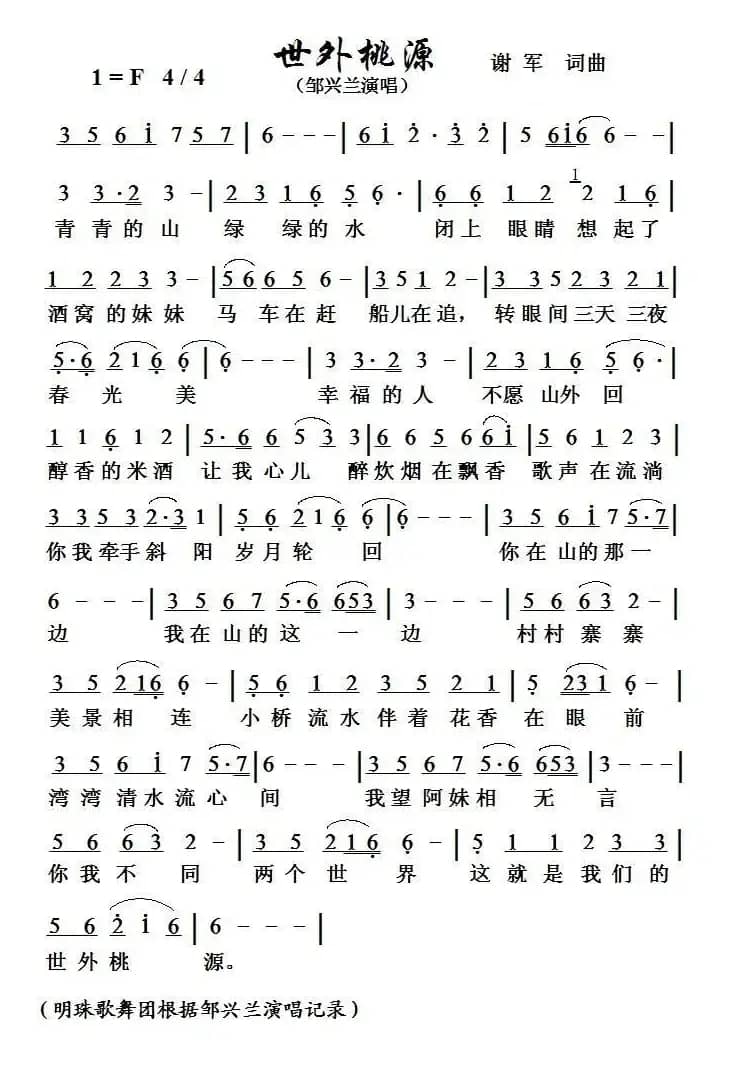 世外桃源
1=F 4/4 （邹兴兰演唱） 谢军 词曲
3 5 6 i 7 5 7 | 6 - - - | 6 i 2 · 3 2 | 5 6 i 6 6 - - |
3 3 · 2 3 - | 2 3 1 6 5 6 · | 6 6 1 2 1 2 1 6 |
青青的山 绿绿的水 闭上眼睛想起了
1 2 2 3 3 - | 5 6 6 5 6 - | 3 5 1 2 - | 3 3 5 2 3 2 1 |
酒窝的妹妹 马车在赶 船儿在追，转眼间三天三夜
5 · 6 2 1 6 6 | 6 - - - | 3 3 · 2 3 - | 2 3 1 6 5 6 · |
春光美 幸福的人 不愿山外回
1 1 6 1 2 | 5 · 6 6 5 3 3 | 6 6 5 6 6 i | 5 6 1 2 3 |
醇香的米酒 让我心儿 醉炊烟在飘香 歌声在流淌
3 3 5 3 2 · 3 1 | 5 6 2 1 6 6 | 6 - - - | 3 5 6 i 7 5 · 7 |
你我牵手斜阳 岁月轮回 你在山的那一
6 - - - | 3 5 6 7 5 · 6 6 5 3 | 3 - - - | 5 6 6 3 2 - |
边 我在山的这一边 村村寨寨
3 5 2 1 6 6 - | 5 6 1 2 3 5 2 1 | 5 2 3 1 6 - |
美景相连 小桥流水伴着花香在眼前
3 5 6 i 7 5 · 7 | 6 - - - | 3 5 6 7 5 · 6 6 5 3 | 3 - - - |
湾湾清水流心间 我望阿妹相无言
5 6 6 3 2 - | 3 5 2 1 6 6 - | 5 1 1 2 3 3 |
你我不同 两个世界 这就是我们的
5 6 2 i 6 | 6 - - - |
世外桃源。
（明珠歌舞团根据邹兴兰演唱记录）